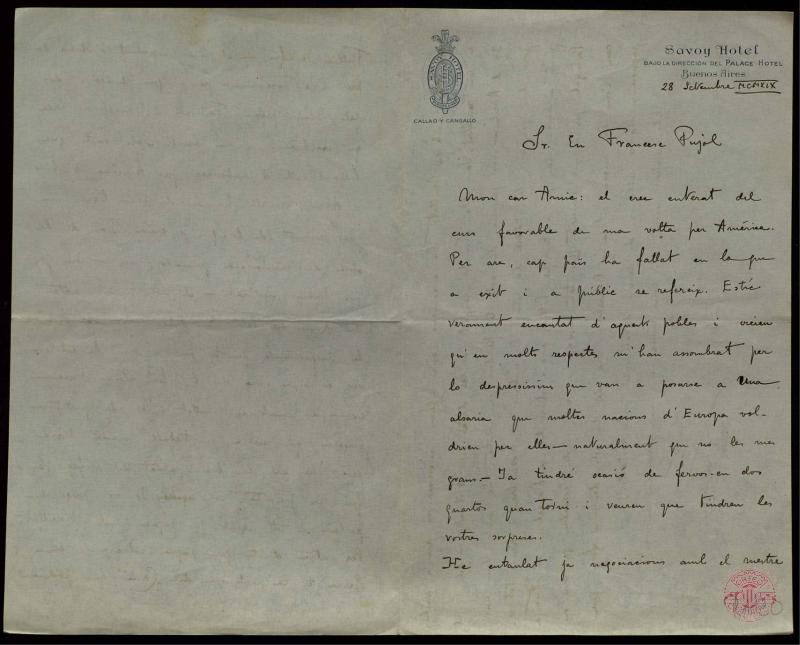 SAVOY HOTEL
CALLAO Y CANGALLO
Savoy Hotel
BAJO LA DIRECCIÓN DEL PALACE HOTEL
Buenos Aires
28 Setembre MCMXIX
Sr. En Francesc Pujol
Mon car Amic: el crec enterat del
curs favorable de ma volta per América.
Per are, cap païs ha fallat en lo que
a exít i a públic se refereix. Estic
verament encantat d'aquets pobles i
qu'en molts respectes m'han assombrat per
lo despressisim que van a posarse a una
alsaria que moltes nacions d'Europa vol-
drien per elles — naturalment que no les mes
grans.— Ja tindré ocasió de fervos-en dos
quartos quan torni i veureu que tindreu les
vostres sorpreses.
He entaulat ja negociacions amb el mestre